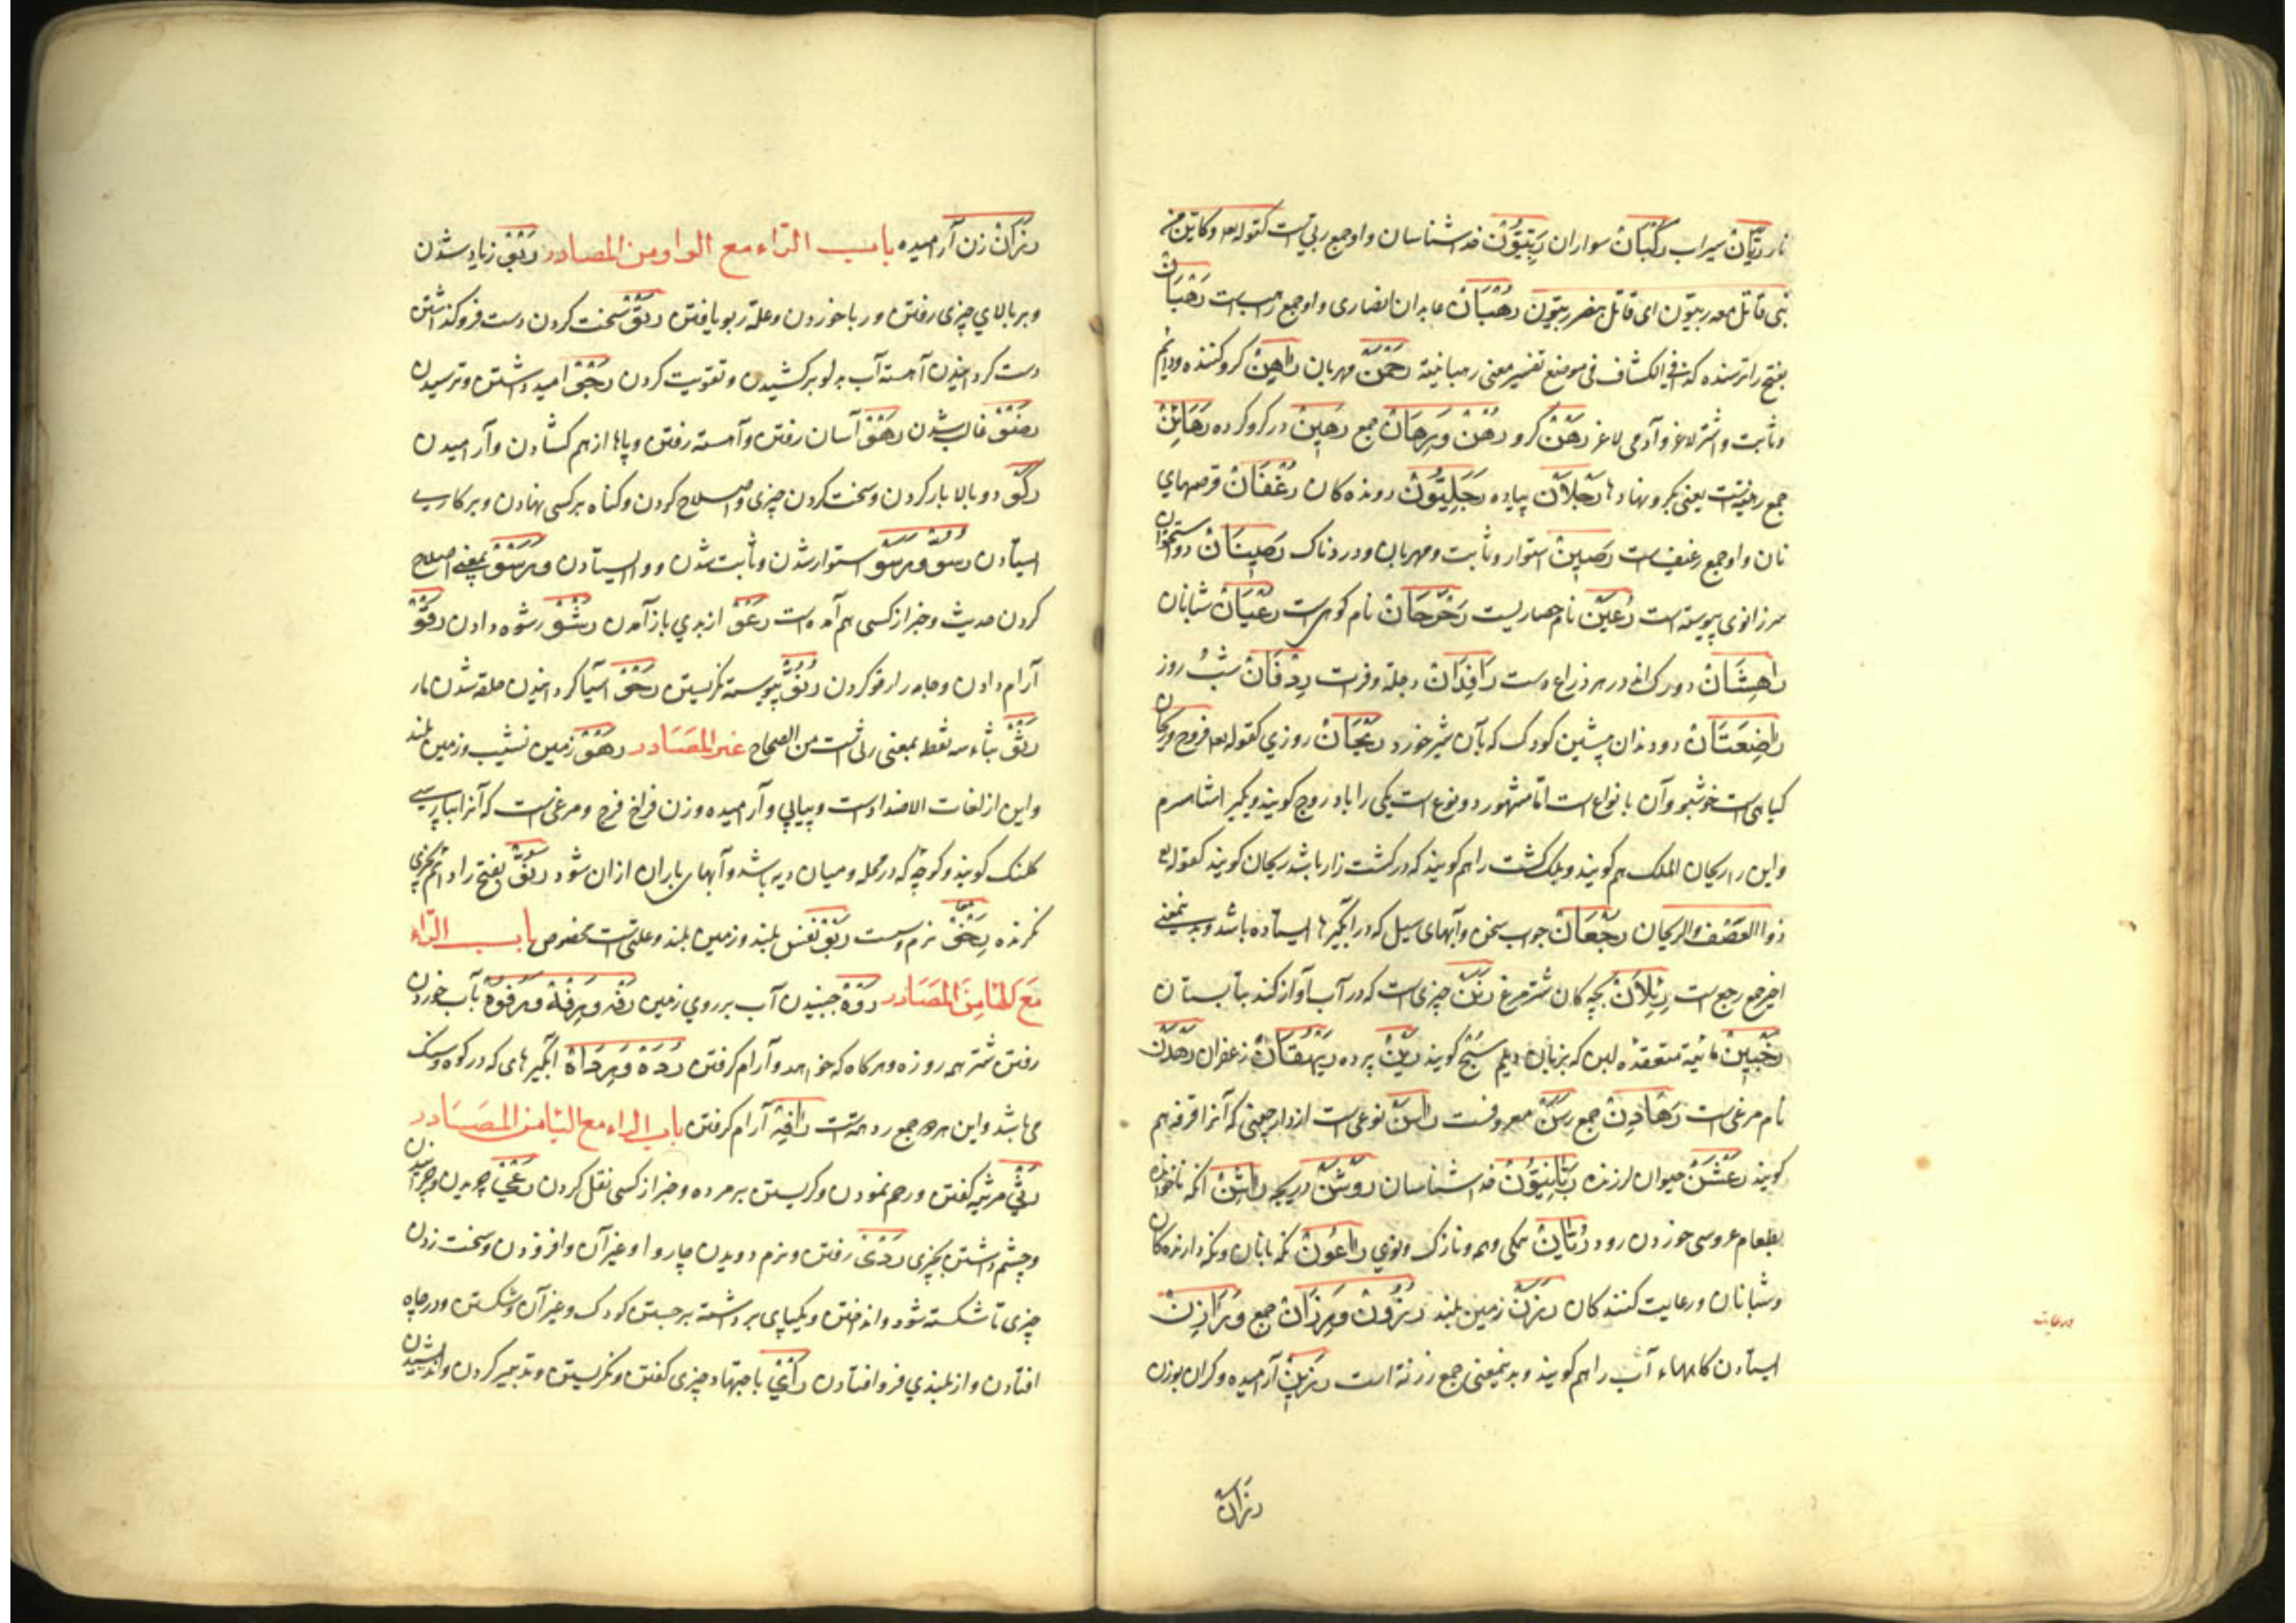 نار رَيَّانْ سیراب رُكْبَانْ سواران رِبِّيُّوْنْ خداشناسان و او جمع ربی است کقوله تعه وکاین من
نبی قاتل معه ربیّون ای قاتل بنصر ربیّون رُهْبَانْ عابدان نصاری و او جمع راهب است رَهْبَانْ
بفتح را ترسنده کذا فی الکشاف فی موضع تفسیر معنی رهبانیة رَحْمٰنْ مهربان رَاهِنْ گرو کننده و دائم
و ثابت و اشتر لاغر و آدمی لاغر رَهْنْ گرو رُهُنْ وَرِهَانْ جمع رَهِيْنْ در گرو کرده رَهَائِنْ
جمع رهینه است یعنی بگرو نهادها رَجْلَانْ پیاده رَجَلِيُّوْنْ رونده کان رُغْفَانْ قرصهای
نان و او جمع رغیف است رَصِيْنْ استوار و ثابت و مهربان و دردناک رَصِيْنَانْ دو استخوان
سر زانوی پیوسته است رُعَيْنْ نام حصاریست رَحْرَحَانْ نام کوهی است رُعْيَانْ شبانان
رَاهِشَانْ دو رگ اند در هر ذراع دست رَافِدَانْ دجله و فرات رِدْفَانْ شب و روز
رَاضِعَتَانْ دو دندان پیشین کودک که بآن شیر خورد رَيْحَانْ روزی کقوله تعه فروح و ریحان
کیاهی است خوشبو و آن بانواع است اما مشهور دو نوع است یکی را باد روج کویند و دیگر اشاه سپرم
و این را ریحان الملک هم کویند و بلک کشت را هم کویند که در کشت زار باشد ریحان کویند کقوله تع
ذوا العصف والریحان رُجْعَانْ جواب سخن و آبهای سیل که در آبگیرها ایستاده باشد و بدینمعنی
اخیر جمع رجع است رِئْلَانْ بچه کان شتر مرغ رَنَنْ چیزی است که در آب آواز کند بتابستان
رَخْبِيْنْ مائیة منعقده لبن که بزبان دیلم سنج کویند رَيْنْ پرده رَيْهُقَانْ زعفران رَهْدَنْ
نام مرغی است رَهَادِنْ جمع رَسَنْ معروفست رَاسَنْ نوعی است از دارچینی که آنرا قرفه هم
کویند رَعْشَنْ حیوان لرزنده رَبَّانِيُّوْنْ خداشناسان رَوْشَنْ دریچه رَاشِنْ آنکه ناخوانده
بطعام عروسی خوردن رود رُتَايِنْ همکی و همه و نازک و نوی رَاعُوْنْ نگه بانان و نگه دارنده کان
و شبانان و رعایت کنندکان رَزْنْ زمین بلند رُزُوْنْ وَرِزَانْ جمع وَرَازِنْ
ایستادن کاههاء آب را هم کویند و بدینمعنی جمع رزنة است رَزِيْنْ آرمیده و گران بوزن
رزان
رَزَانْ زن آرامیده باب الرّاء مع الواو من المصادر رَبْوْ زیاد شدن
و بر بالای چیزی رفتن و ربا خوردن و علة ربو یافتن رَتْوْ سخت کردن و سست فرو گذاشتن
دست کردانیدن آهسته آب بدلو برکشیدن و تقویت کردن رَجْوْ امید داشتن و ترسیدن
رَهْوْ آسان رفتن و آهسته رفتن و پاها از هم کشادن و آرامیدن
رَكْوْ دو بالا بار کردن و سخت کردن چیزی و اصلاح کردن و گناه بر کسی نهادن و بر کاری
ایستادن رُسُوّْ وَرَسْوْ استوار شدن و ثابت شدن و وا ایستادن وَرَسْوْ بمعنی اصلاح
کردن حدیث و خبر از کسی هم آمده است رَعْوْ از بدی باز آمدن رَشْوْ رشوه دادن رَفْوْ
آرام دادن و جامه را رفو کردن رُنُوّْ پیوسته نگریستن رَحْوْ آسیا کردانیدن حلقه شدن مار
رَثْوْ بثاء سه نقطه بمعنی رثی است من الصحاح غیر المصادر رَهْوْ زمین نشیب و زمین بلند
و این از لغات الاضداد است و پیاپی و آرامیده و زن فراخ فرج و مرغی است که آنرا بپارسی
کلنک کویند و کوچه که در محله و میان دیه باشد و آبهای باران از آن شود رَنُوّْ بفتح را دائم بچیزی
نگرنده رِخْوْ نرم و سست رَبْوْ نفس بلند و زمین بلند و علتی است مخصوص باب الرّاء
مع الهاء من المصادر رَوْهْ جنبیدن آب بر روی زمین رَفْهْ وَرِفْهْ وَرُفُوْهْ بآب خوردن
رفتن شتر همه روزه و هرگاه که خواهد و آرام گرفتن رُدَهْ وَرِدَاهْ آبگیرهای که در کوه و سنگ
می باشد و این هر دو جمع ردهه است رَافِهْ آرام گرفتن باب الراء مع الیا من المصادر
رَثْيْ مرثیه کفتن و رحم نمودن و گریستن بر مرده و خبر از کسی نقل کردن رَعْيْ چریدن و چرانیدن
و چشم داشتن بچیزی رَدْيْ رفتن و نرم دویدن چاروا و غیر آن و افزودن و سخت زدن
چیزی تا شکسته شود و انداختن و بیکپای برداشته برجستن کودک و غیر آن و شکستن و در چاه
افتادن و از بلندی فرو افتادن رَأْيْ باجتهاد چیزی کفتن و نگریستن و تدبیر کردن و اندیشیدن